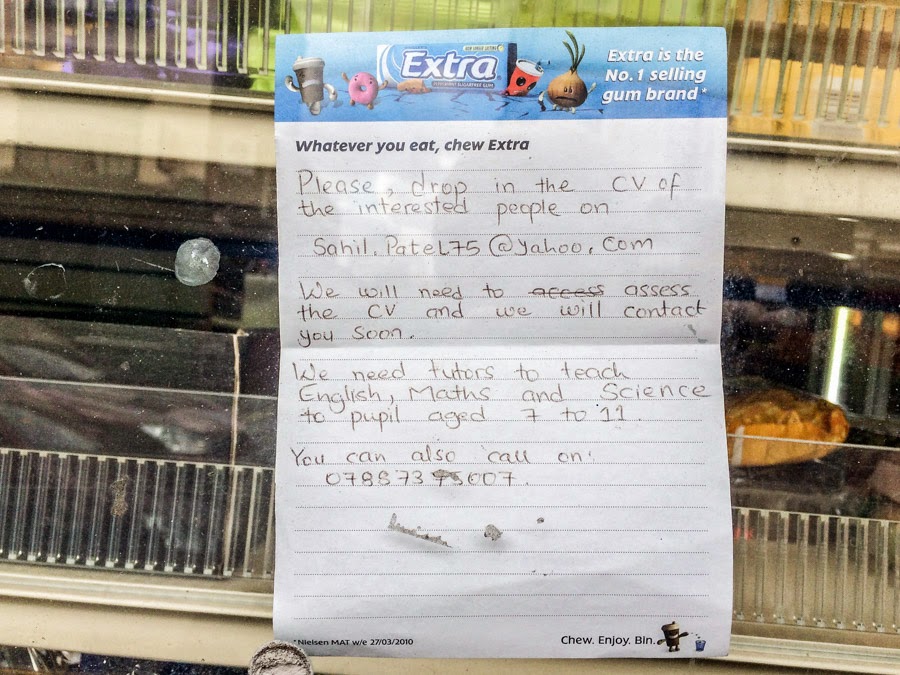 Extra
Extra is the
No. 1 selling
gum brand*
Whatever you eat, chew Extra
Please, drop in the CV of
the interested people on
Sahil.Patel75@yahoo.com
We will need to access assess
the CV and we will contact
you soon.
We need tutors to teach
English, Maths and Science
to pupil aged 7 to 11.
You can also call on:
078873 007.
*Nielsen MAT w/e 27/03/2010
Chew. Enjoy. Bin.